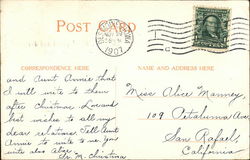 POST CARD
1907
CORRESPONDENCE HERE
NAME AND ADDRESS HERE
and Aunt Annie that
I will write to them
after Christmas. Love and
best wishes to all my
dear relations. Tell Aunt
Annie to write to me. You
write also Alice.
M. Christina
Miss Alice Manney,
109 Petaluma Ave
San Rafael,
California